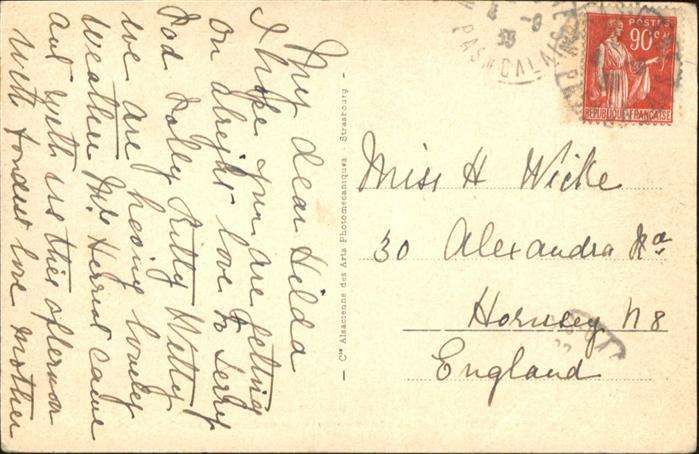 My dear Hilda
I hope you are getting
on alright love to Terry
Pod Holly Kitty Wethy
we are having lovely
weather Mrs came
out with us this afternoon
with fondest love Mother
Cie Alsacienne des Arts Photomécaniques, Strasbourg
8
35
PAS DE CALAIS
POSTES
90c
REPUBLIQUE FRANÇAISE
Miss H Wicke
30 Alexandra Rd
Hornsey N8
England